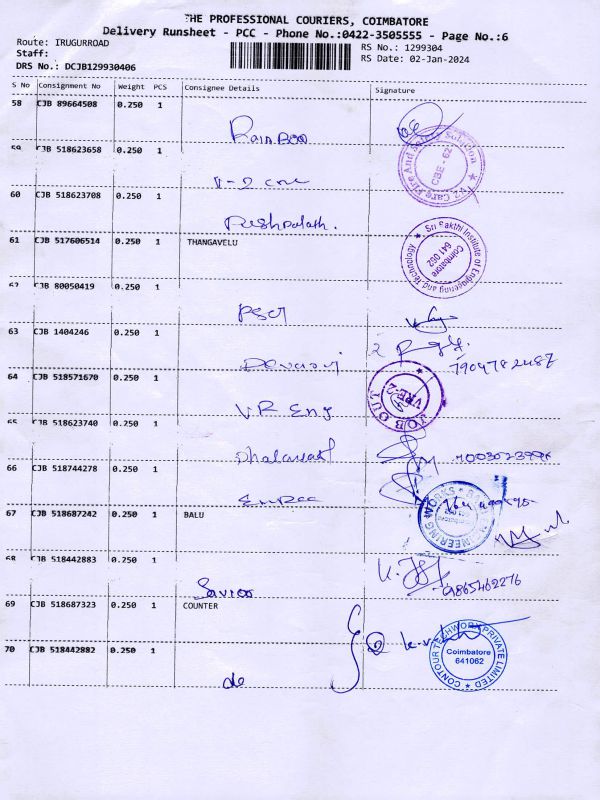 THE PROFESSIONAL COURIERS, COIMBATORE
Delivery Runsheet - PCC - Phone No.:0422-3505555 - Page No.:6
Route: IRUGURROAD
RS No.: 1299304
Staff:
RS Date: 02-Jan-2024
DRS No.: DCJB129930406
S No Consignment No Weight PCS Consignee Details Signature
58 CJB 89664508 0.250 1
Rainboo
59 CJB 518623658 0.250 1
V-2 care
V2 Care Fire And Safety Solution
CBE - 62
60 CJB 518623708 0.250 1
Pushpalath.
61 CJB 517606514 0.250 1 THANGAVELU
Sri Sakthi Institute of Engineering and Technology
Coimbatore
641 062
62 CJB 80050419 0.250 1
PSG
63 CJB 1404246 0.250 1
Devaraj
7904782487
64 CJB 518571670 0.250 1
VR Eng
JOB OUT
VRE-2
65 CJB 518623740 0.250 1
66 CJB 518744278 0.250 1
ENGINEERING WORKS
67 CJB 518687242 0.250 1 BALU
68 CJB 518442883 0.250 1
9865462276
Savioo
69 CJB 518687323 0.250 1 COUNTER
70 CJB 518442882 0.250 1
CONTOUR TECHWORK PRIVATE LIMITED
Coimbatore
641062
do